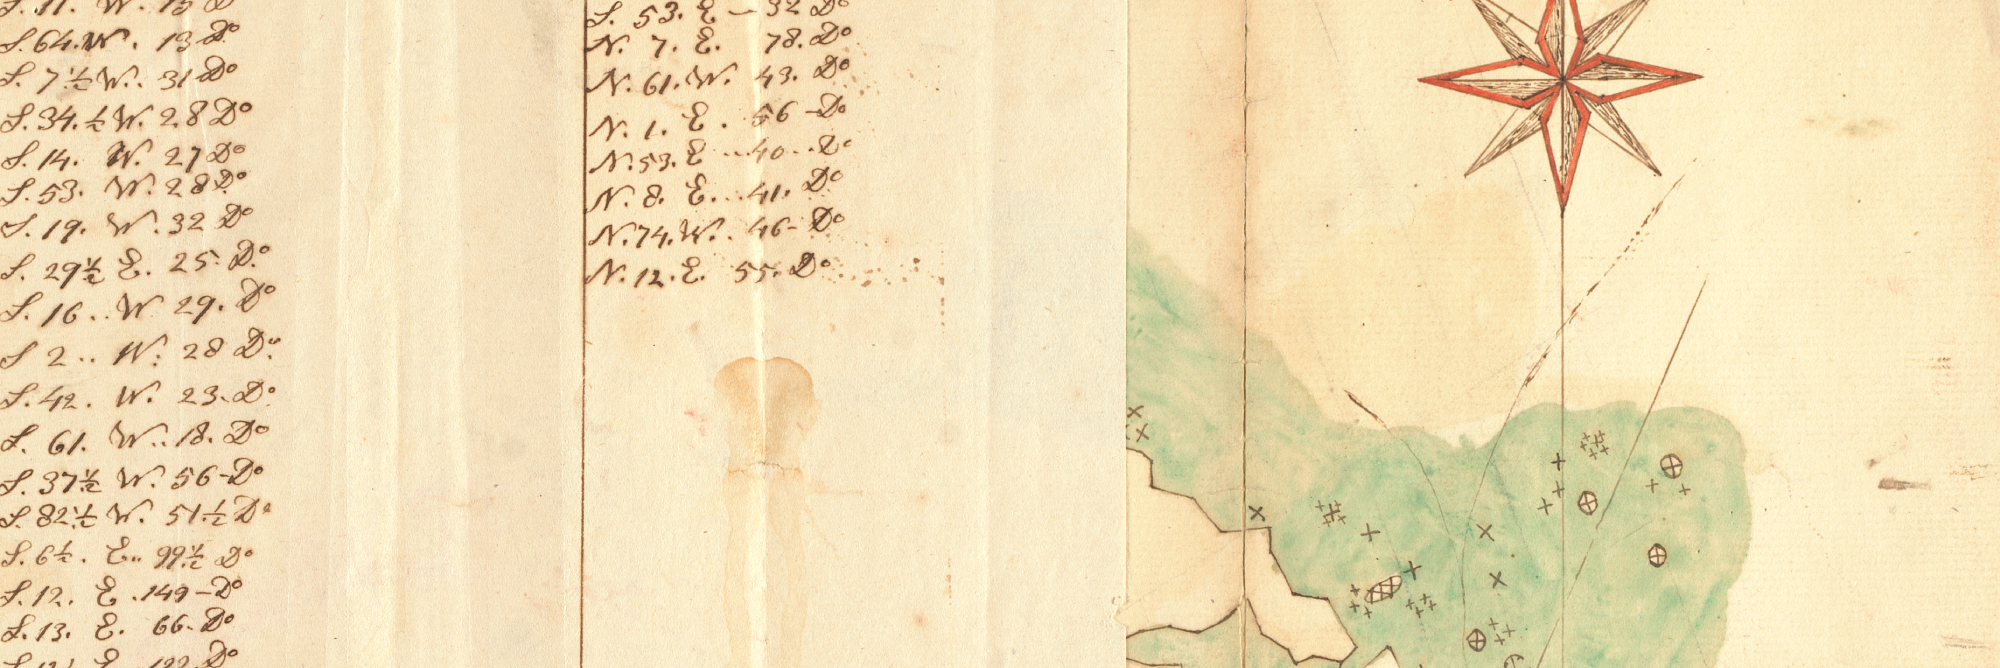 S. 11. W. 15 Do
S. 64. W. 13 Do
S. 7 1/2 W. 31 Do
S. 34. 1/2 W. 28 Do
S. 14. W. 27 Do
S. 53. W. 28 Do
S. 19. W. 32 Do
S. 29 1/2 E. 25. Do
S. 16.. W 29. Do
S 2.. W. 28 Do
S. 42. W. 23. Do
S. 61. W.. 18. Do
S. 37 1/2 W. 56 - Do
S. 82 1/2 W. 51. 1/2 Do
S. 6 1/2. E.. 99 1/2 Do
S. 12. E. 149 - Do
S. 13. E. 66. Do
S. 53. E - 32 Do
N. 7. E. 78. Do
N. 61. W. 43. Do
N. 1. E. 56 - Do
N. 53. E ... 40 .. Do
N. 8. E... 41. Do
N. 74. W. 46 - Do
N. 12. E. 55. Do